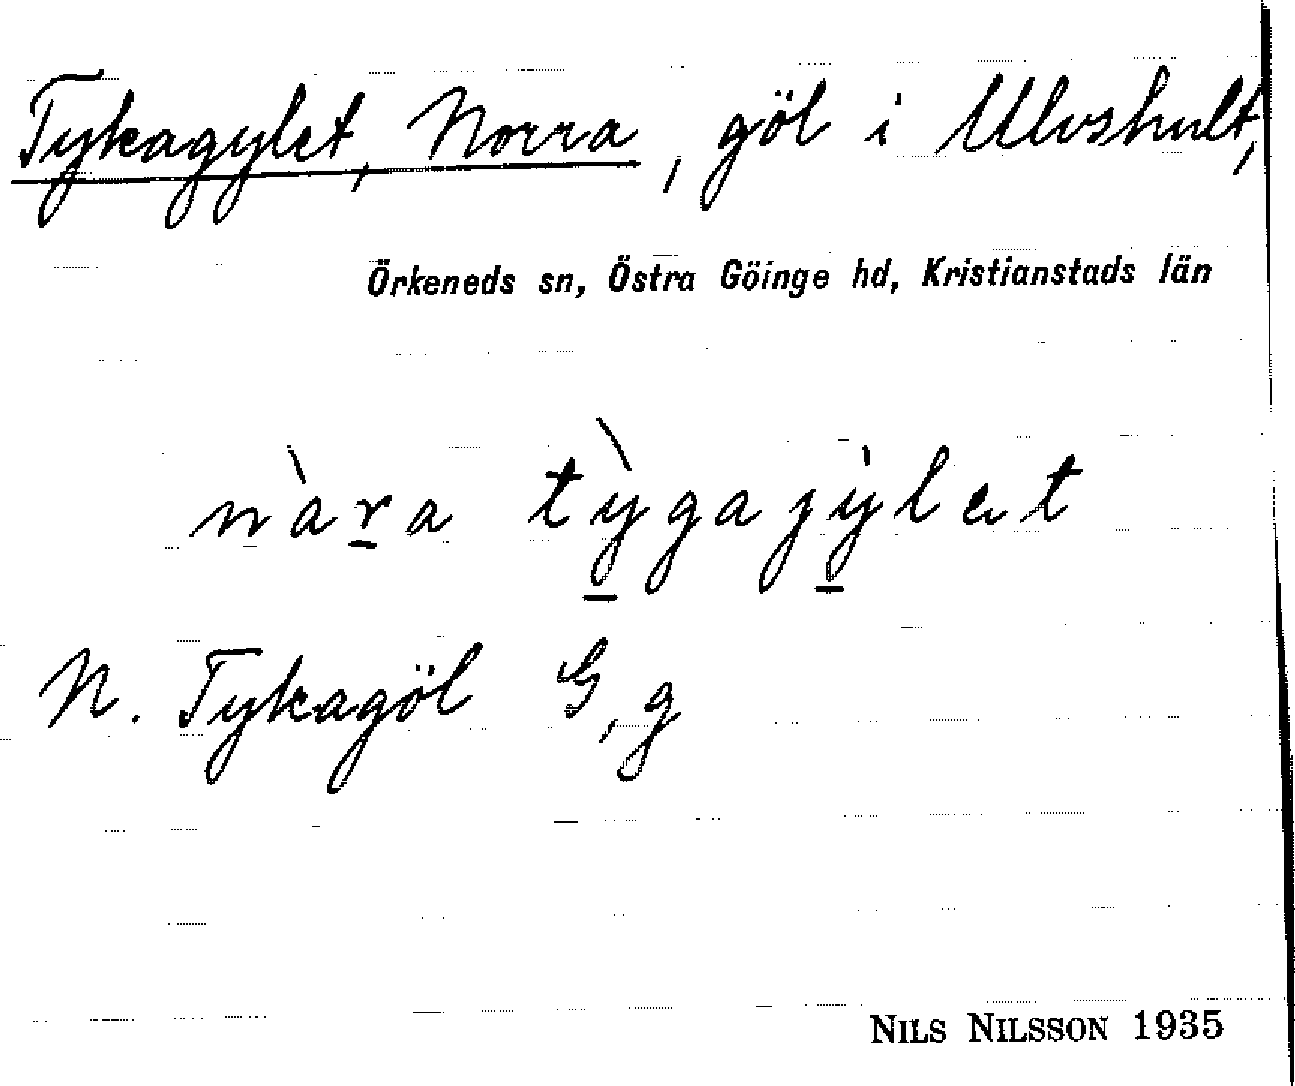 Tykagylet, Norra, göl i Ulvshult,
Örkeneds sn, Östra Göinge hd, Kristianstads län
nàr̲a tỳ̲gajỳ̲let
N. Tykagöl G, g
NILS NILSSON 1935